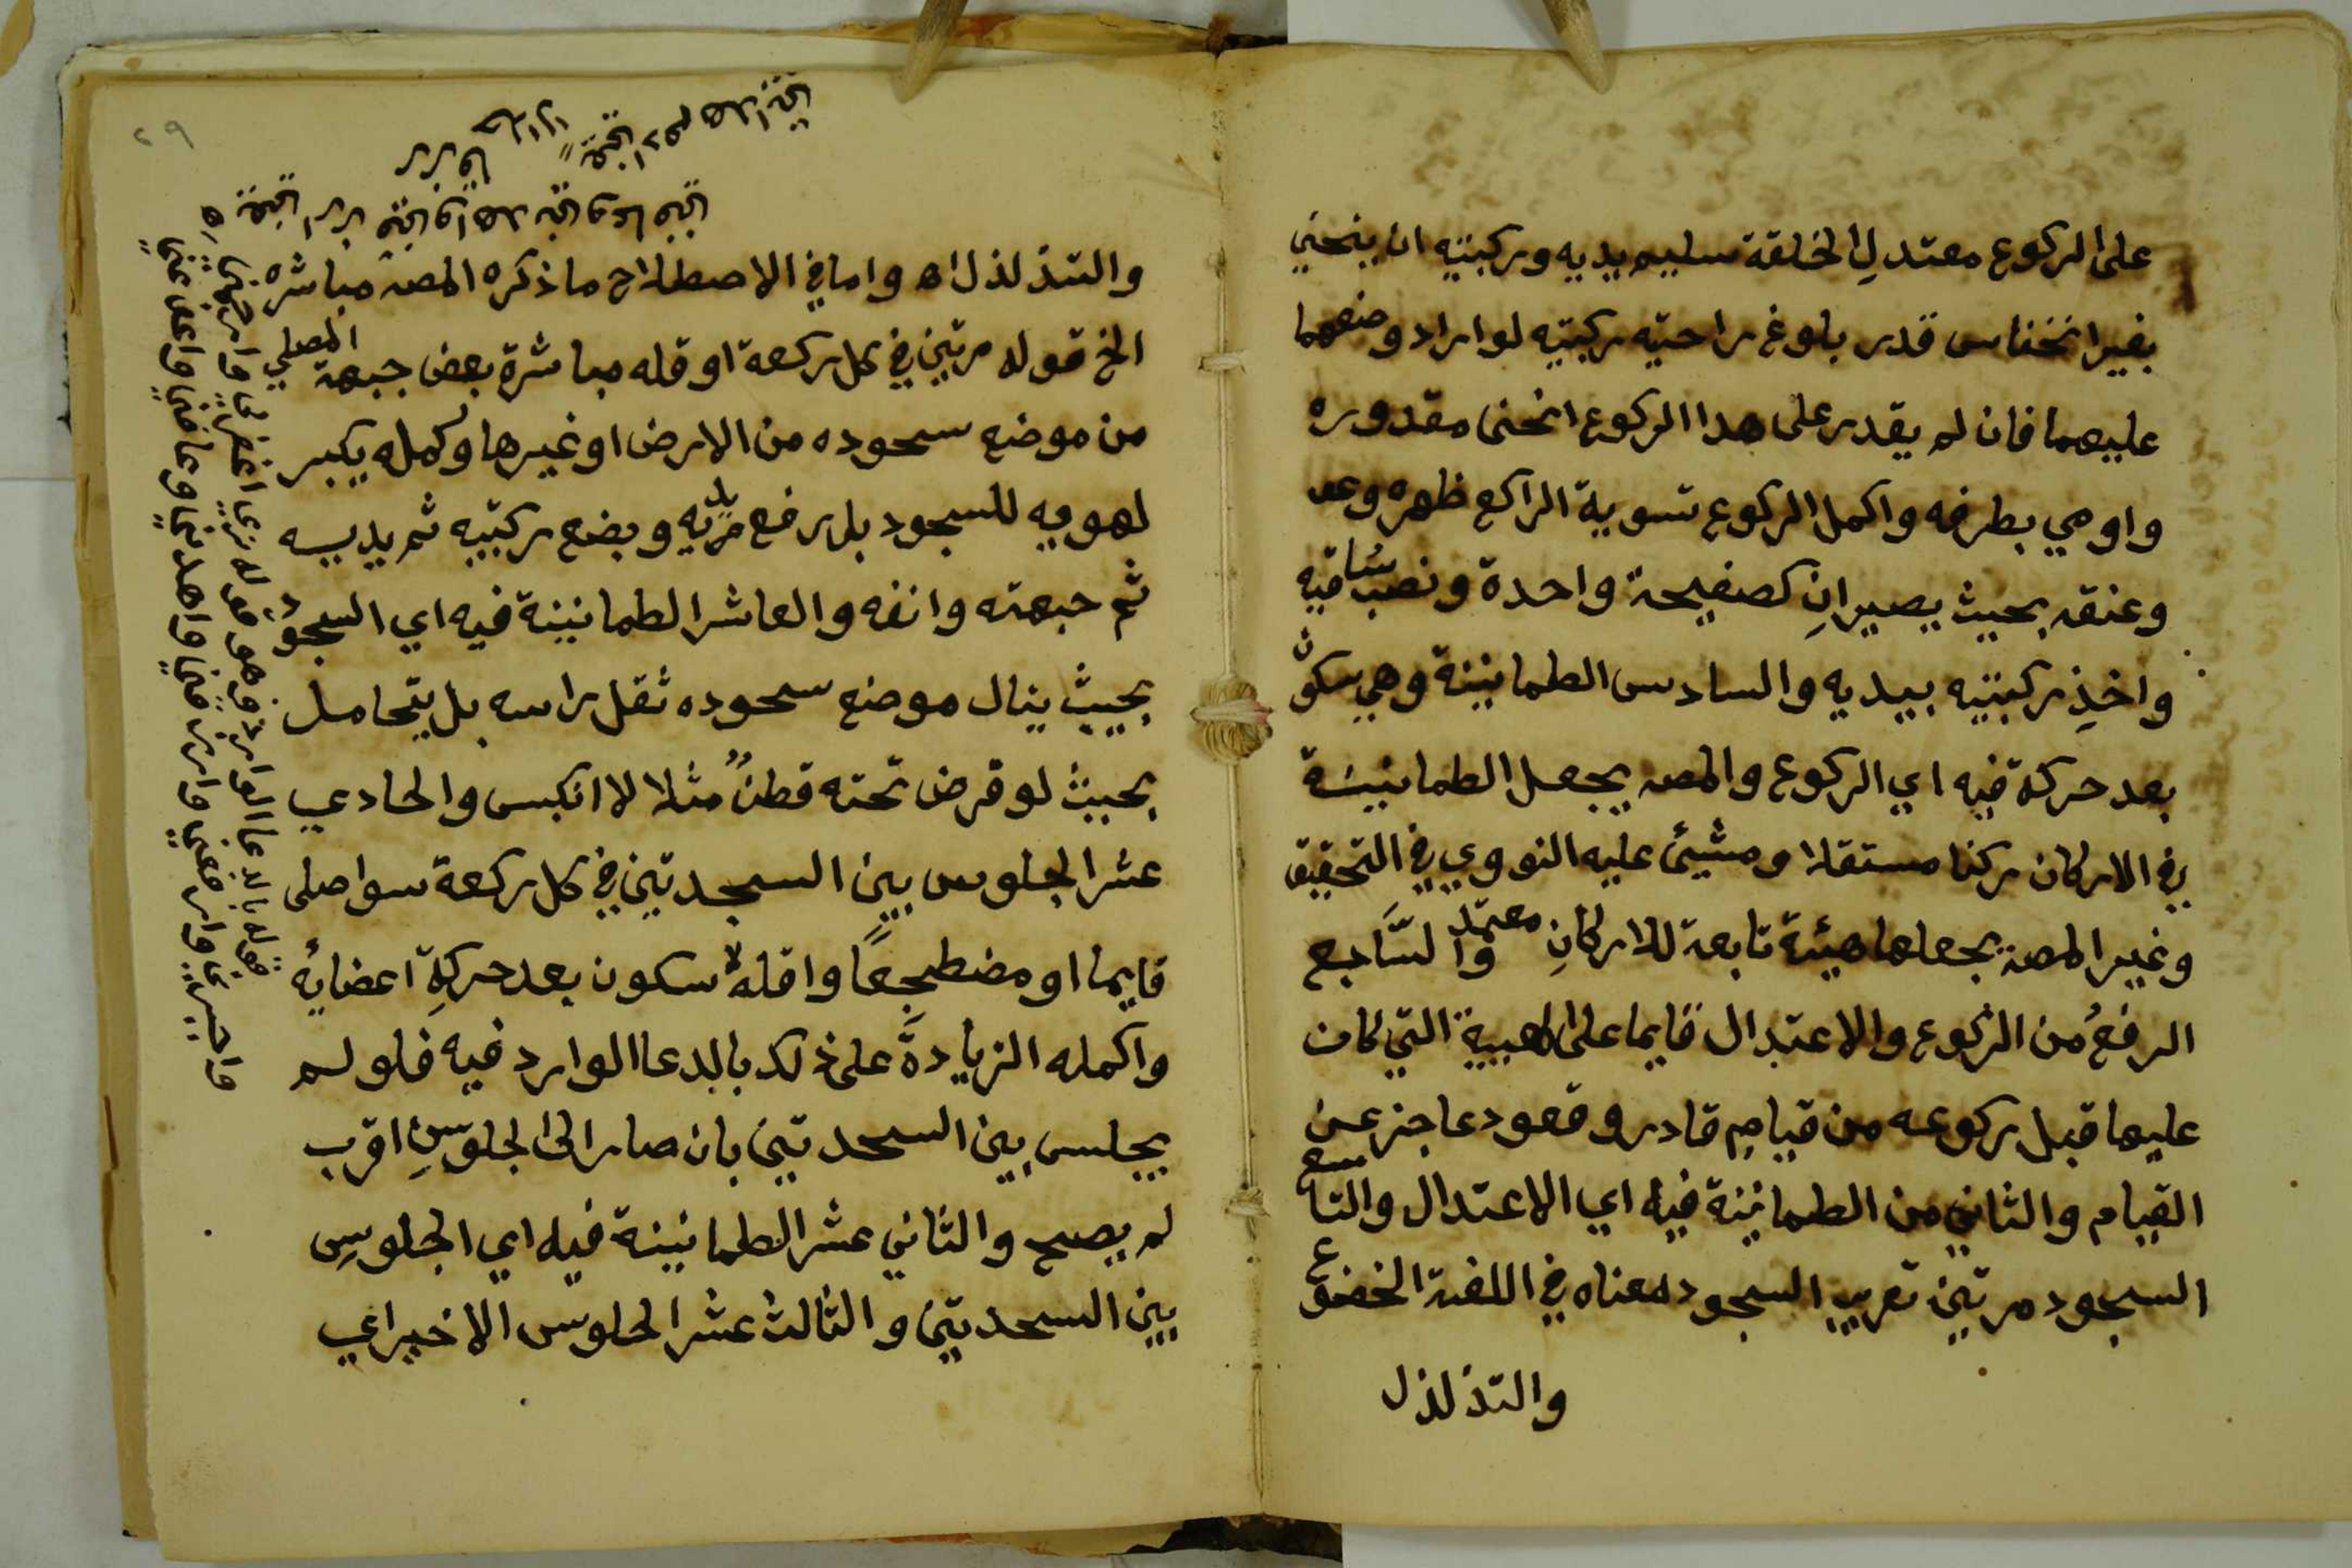 على الركوع معتدلِ الخلقة سليم يديه وركبتيه ان ينحني
بغير انخناس قدر بلوغ راحتيه ركبتيه لو اراد وضعهما
عليهما فان لم يقدر على هدا الركوع انحنى مقدوره
واومي بطرفه واكمل الركوع تسوية الراكع ظهره وعد
وعنقه بحيث يصيرانِ كصفيحة واحدة ونصب ساقيه
واخذِ ركبتيه بيديه والسادس الطمانينة وهي سكون
بعد حركة فيه اي الركوع والمصـ يجعل الطمانينة
في الاركان ركنا مستقلا ومشيئ عليه النووي في التحقيق
وغير المصـ يجعلها هيئة تابعة للاركانِ معتمد والسَّابع
الرفعُ من الركوع والاعتدال قايما على الهيية التي كان
عليها قبل ركوعه من قيامِ قادر وقعود عاجز عن
القيام والثاني من الطمانينة فيه اي الاعتدال والتاسع
السجود مرتين تعريب السجود معناه في اللغة الخضوع
والتذلذل
والتذلذل اه واما في الاصطلاح ما ذكره المصـ مباشره
الخ قوله مرتين في كل ركعة او قله مباشرة بعض جبهة المصلي
من موضع سحوده من الارض او غيرها وكمله يكبر
لهويه للسجود بلا رفع يديه ويضع ركبتيه ثم يديسه
ثم حبهته وانفه والعاشر الطمانينة فيه اي السجود
بحيث ينال موضع سحوده ثقل راسه بل يتحامل
بحيث لو قرض تحته قطنٌ مثلا لا انكبس والحادي
عشر الجلوس بين السجدتين في كل ركعة سوا صلى
قايما او مضطجِعًا واقله سكون بعد حركةِ اعضائه
واكمله الزيادةَ على ذلك بالدعا الوارد فيه فلو لم
يجلس بين السحدتين بان صار الى الجلوسِ اقرب
لم يصح والثاني عشر الطمانينة فيه اي الجلوسِ
بين السحدتين والثالث عشر الحلوس الاخير اي
قوله بالدعا الوارد فيه وهو قوله ربي اغفر لي وارحمني
واجبرني وارفعني وارزقني واهدني وعافني واعف عني